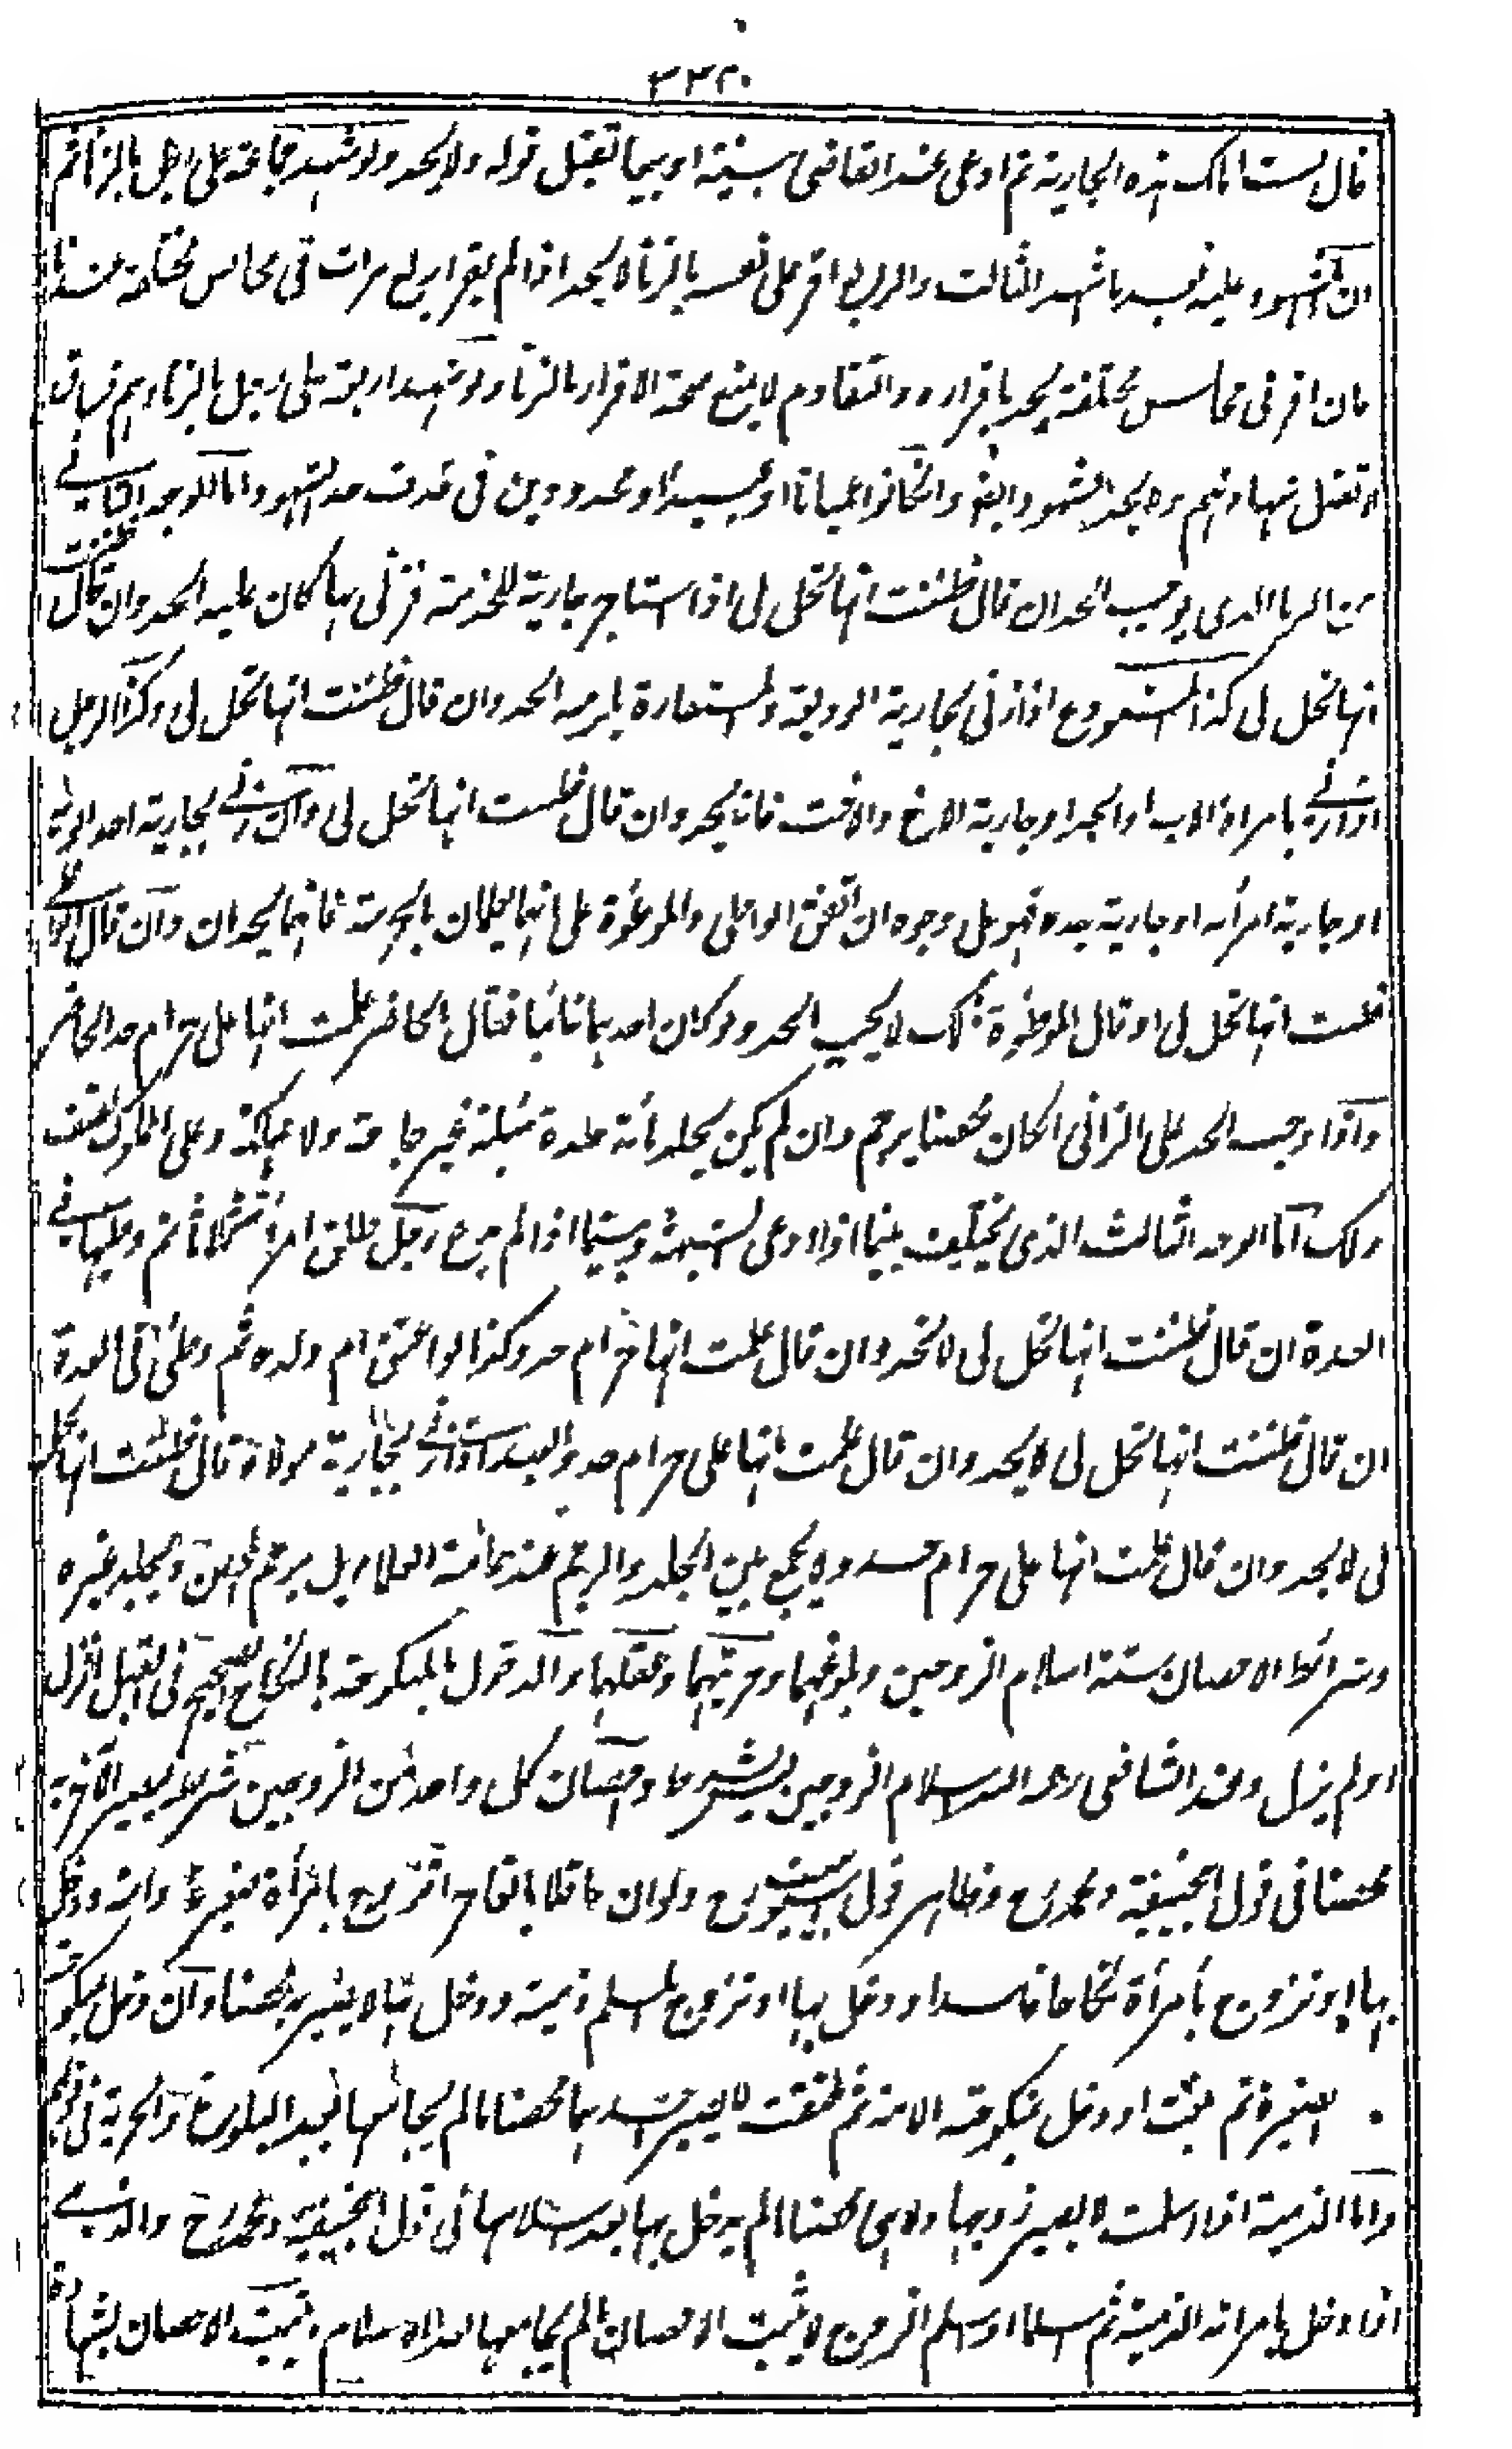 قال لست املك هذه الجارية ثم ادعى عند القاضي ببينة او بيعا تقبل قوله ولا يحد ولو شهد جماعة على رجل بالزنا ثم
ان المشهود عليه بعد ما شهد الثالث والرابع اقر على نفسه بالزنا لا يحد اذا لم يقر اربع مرات في مجالس مختلفة
فان اقر في مجالس مختلفة يحد باقراره والتقادم لا يمنع صحة الاقرار بالزنا ولو شهد اربعة على رجل بالزنا وهم فساق
لا تقبل شهادتهم ولا يحد الشهود ايضا وان كانوا عميانا او عبيدا او محدودين في قذف حد الشهود واما الوجه الثاني
من الزنا الذي يوجب الحد ان قال ظننت انها تحل لي اذا استاجر جارية للخدمة فزنى بها كان عليه الحد وان قال ظننت
انها تحل لي كذا المستودع اذا زنى بجارية الوديعة والمستعارة يلزمه الحد وان قال ظننت انها تحل لي وكذا الرجل
اذا زنى بامراة الاب او الجد او جارية الاخ والاخت فانه يحد وان قال ظننت انها تحل لي وان زنى بجارية احد ابويه
او جارية امرأته او جارية جده فهو على وجوه ان اتفق الواطي والموطوءة على انهما يعلمان بالحرمة فانهما يحدان وان قال
ظننت انها تحل لي او قال الموطوءة ذلك لا يجب الحد ولو كان احدهما غائبا فقال الحاضر علمت انها على حرام حد الحاضر
واذا وجب الحد على الزاني ان كان محصنا يرجم وان لم يكن يجلد مائة جلدة غير جارحة ولا وعلى المملوك نصف
ذلك اما الوجه الثالث الذي يختلف بينما اذا ادعى الشبهة وبينما اذا لم يدع رجل طلق امرأته ثلاثا ثم وطيها في
العدة ان قال ظننت انها تحل لي لا يحد وان قال علمت انها حرام حد وكذا لو اعتق ام ولده ثم وطئ في العدة
ان قال ظننت انها تحل لي لا يحد وان قال علمت انها على حرام حد والعبد اذا زنى بجارية مولاه قال ظننت انها تحل
لي لا يحد وان قال علمت انها على حرام حد ولا يجمع بين الجلد والرجم عند عامة العلماء بل يرجم المحصن ويجلد غيره
وشرائط الاحصان ستة اسلام الزوجين وبلوغهما وحريتهما وعقلهما والدخول بالمنكوحة بالنكاح الصحيح في القبل انزل
او لم ينزل وعند الشافعي رحمه الله اسلام الزوجين ليس بشرط واحصان كل واحد من الزوجين شرط ليصير الآخر به
محصنا في قول ابي حنيفة ومحمد رح وظاهر قول ابي يوسف رح ولو ان عاقلا بالغا حرا تزوج بامرأة صغيرة او امة ودخل
بها او تزوج بامرأة نكاحا فاسدا ودخل بها او تزوج المسلم ذمية ودخل بها لا يصير به محصنا وان دخل بمنكوحته
الصغيرة ثم بلغت او دخل بمنكوحته الامة ثم عتقت لا يصير احد بهما محصنا ما لم يجامعها بعد البلوغ والحرية في قولهم
واما الذمية اذا اسلمت لا يصير زوجها ولا هي محصنا ما لم يدخل بها بعد اسلامها في قول ابي حنيفة ومحمد رح والذمي
اذا دخل بامراته الذمية ثم اسلما او اسلم الزوج لا يثبت الاحصان ما لم يجامعها بعد الاسلام ويثبت الاحصان بشهادة